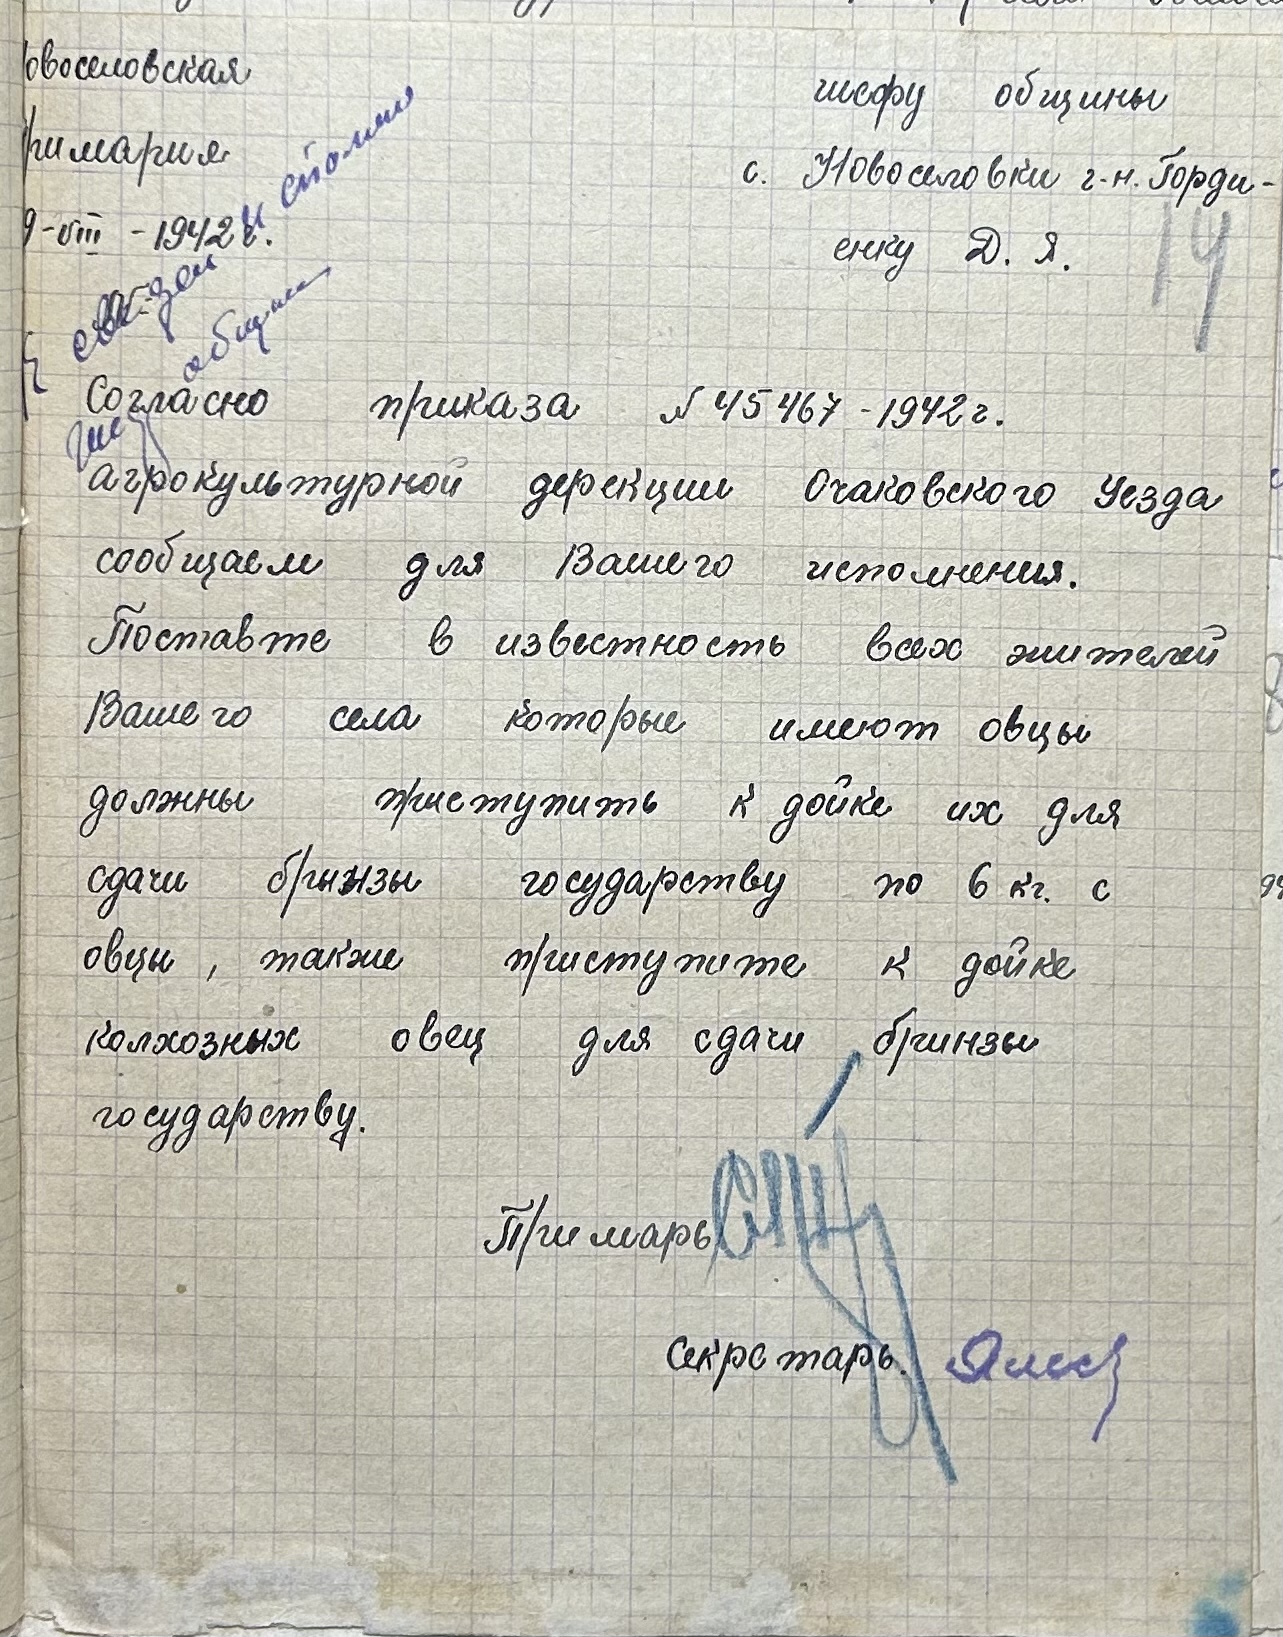 овоселовская
римария
9-VIII-1942 г.
шефу общины
с. Новоселовки г-н. Горди-
енку Д. Я.
14
общины
Согласно приказа № 45467-1942 г.
агрокультурной дерекции Очаковского Уезда
сообщаем для Вашего исполнения.
Поставте в известность всех жителей
Вашего села которые имеют овцы
должны приступить к дойке их для
сдачи брынзы государству по 6 кг. с
овцы, также приступите к дойке
колхозных овец для сдачи бринзы
государству.
Примарь
Секретарь.